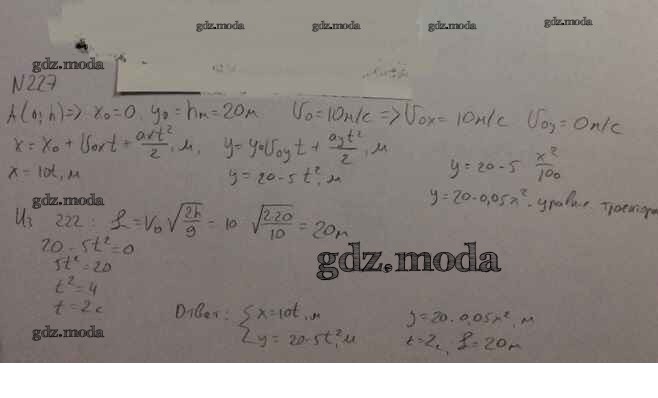 gdz.moda gdz.moda gdz.moda
gdz.moda gdz.moda
N227
A(0; h) => x₀=0, y₀=hм=20м. V₀=10м/с => V₀x = 10м/с V₀y = 0м/с
x = x₀ + V₀xt + axt²/2, м, y = y₀ V₀yt + ayt²/2, м
x = 10t, м y = 20-5t², м y = 20-5 x²/100
gdz.moda y = 20-0,05x² - уравне. траектори
Из 222: L = V₀ √(2h/g) = 10 √(2·20/10) = 20м
20-5t²=0
5t²=20
t²=4
t=2с
gdz.moda
Ответ: { x=10t, м y=20-0,05x², м
y=20-5t², м t=2с, L=20м
gdz.moda gdz.moda